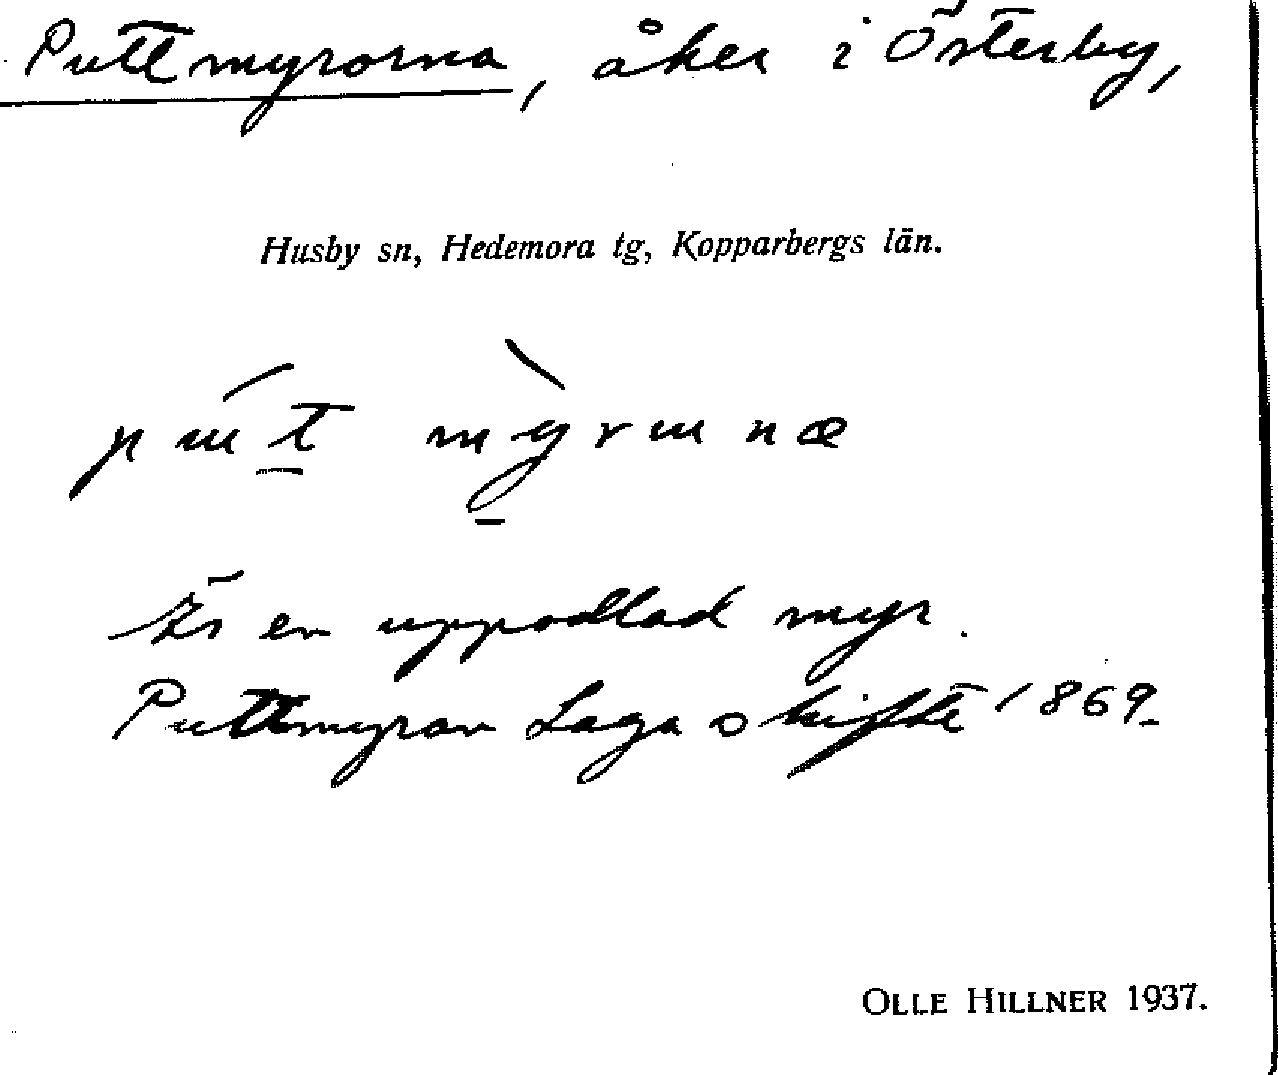 Puttmyrorna, åker i Österby,
Husby sn, Hedemora tg, Kopparbergs län.
Är en uppodlad myr.
Puttmyran Laga skifte 1869.
OLLE HILLNER 1937.